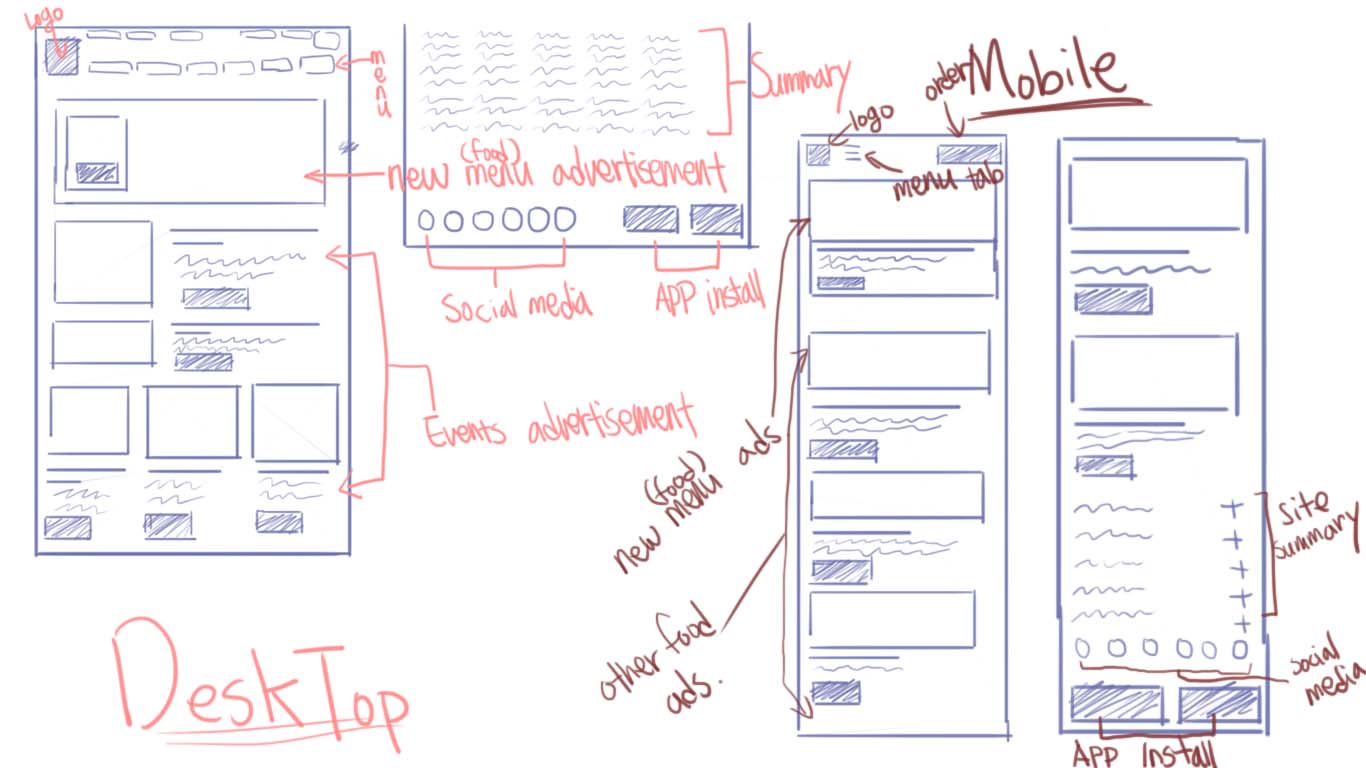 logo
menu
Summary
(food)
new menu advertisement
Social media
APP install
Events advertisement
DeskTop
Mobile
order
logo
menu tab
new (food) menu ads
other food
ads.
Site
summary
social
media
APP Install